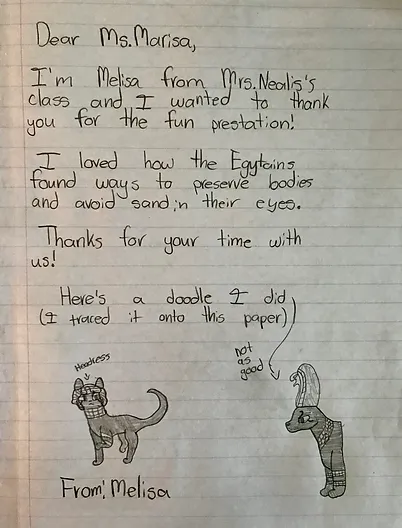 Dear Ms. Marisa,
I'm Melisa from Mrs. Nealis's
class and I wanted to thank
you for the fun prestation!
I loved how the Egytains
found ways to preserve bodies
and avoid sand in their eyes.
Thanks for your time with
us!
Here's a doodle I did
(I traced it onto this paper)
Headress
not
as
good
From: Melisa